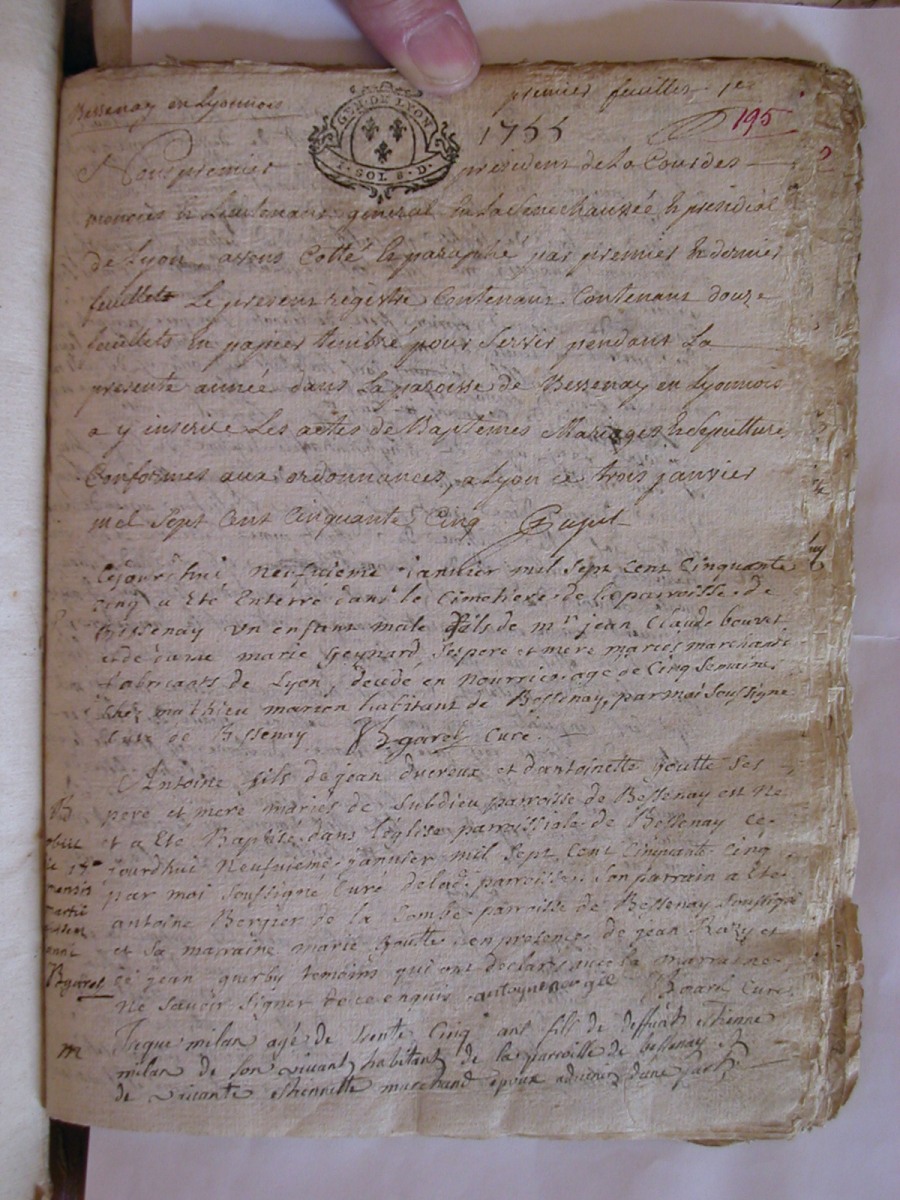 Bessenay en Lyonnois
premier feuillet 1er
GEN. DE LYON
2. SOL 8. D.
1755
195
Nous premier president de la Cour des
monoies & Lieutenant general en la Senechaussée & presidial
de Lyon, avons Cotté & paraphé par premier & dernier
feuillets Le present registre Contenant Contenant douze
feuillets en papier timbré pour Servir pendant La
presente année dans La paroisse de Bessenay en Lyonnois
a y inscrire Les actes de Baptemes Mariages & Sepulture
Conformes aux ordonnances, a Lyon ce trois janvier
mil Sept Cent Cinquante Cinq Pupil
Cejourdhui neufvieme janvier mil Sept Cent Cinquante
cinq a Eté Enterré dans le Cimetiere de la parroisse de
Bessenay un enfant male fils de mr jean Claude bouvet
et de marie Geynard, Ses pere et mere mariés marchands
fabricants de Lyon, decedé en nourrice agé de Cinq Semaines
chez mathieu marion habitant de Bessenay, par moi Soussigné
Curé de Bessenay Bgarel Curé.
Antoine fils de jean ducreux et d'antoinette goutte Ses
pere et mere mariés de Subdieu parroisse de Bessenay est Né
et a Eté Baptisé dans l'église parroissiale de Bessenay ce
jourdhui Neufvieme janvier mil Sept Cent Cinquante Cinq
par moi Soussigné Curé de lad. parroisse. Son parrain a Eté
antoine Bergier de la Combe parroisse de Bessenay Soussigné
et Sa marraine marie Goutte en presence de jean Razy et
de jean guerby temoins qui ont declaré avec la marraine
Ne Savoir Signer de ce enquis Curé
obiit
die 17
mensis
martii
anni
Bgarel
m
milan agé de trente Cinq ans fils de deffunt Etienne
milan de Son vivant habitant de la parroisse de Bessenay et
de vivante Etiennette marchand epoux advenir d'une part